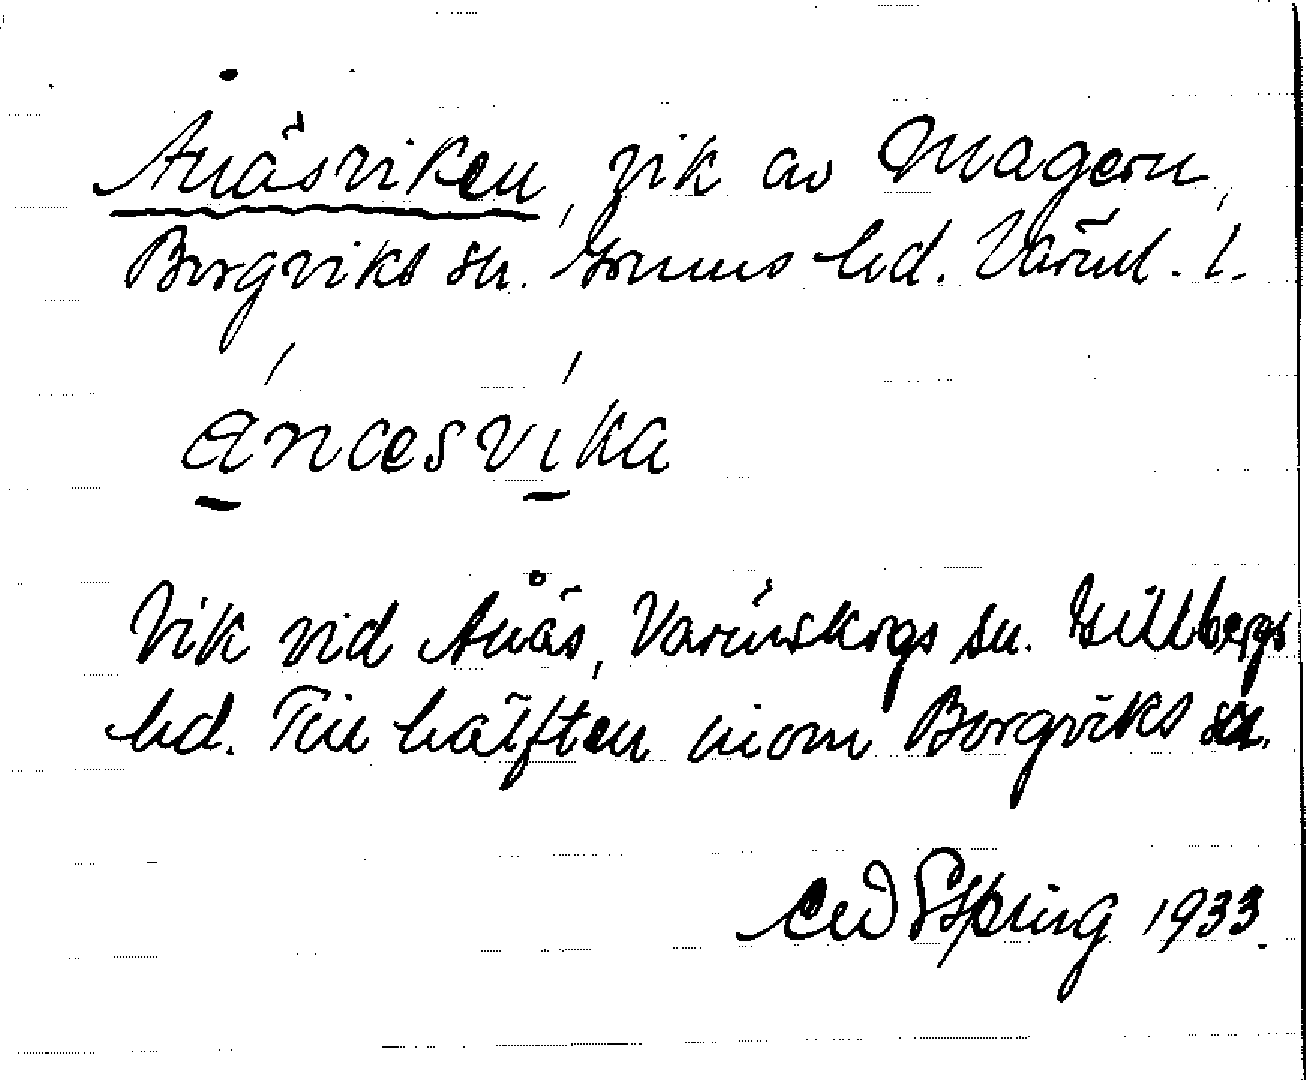 Ånäsviken, vik av Magern,
Borgviks sn. Grums hd. Värml. l.
ánæsvíka
Vik vid Ånäs, Värmskogs sn. Gillbergs
hd. Till hälften inom Borgviks sn.
1933.